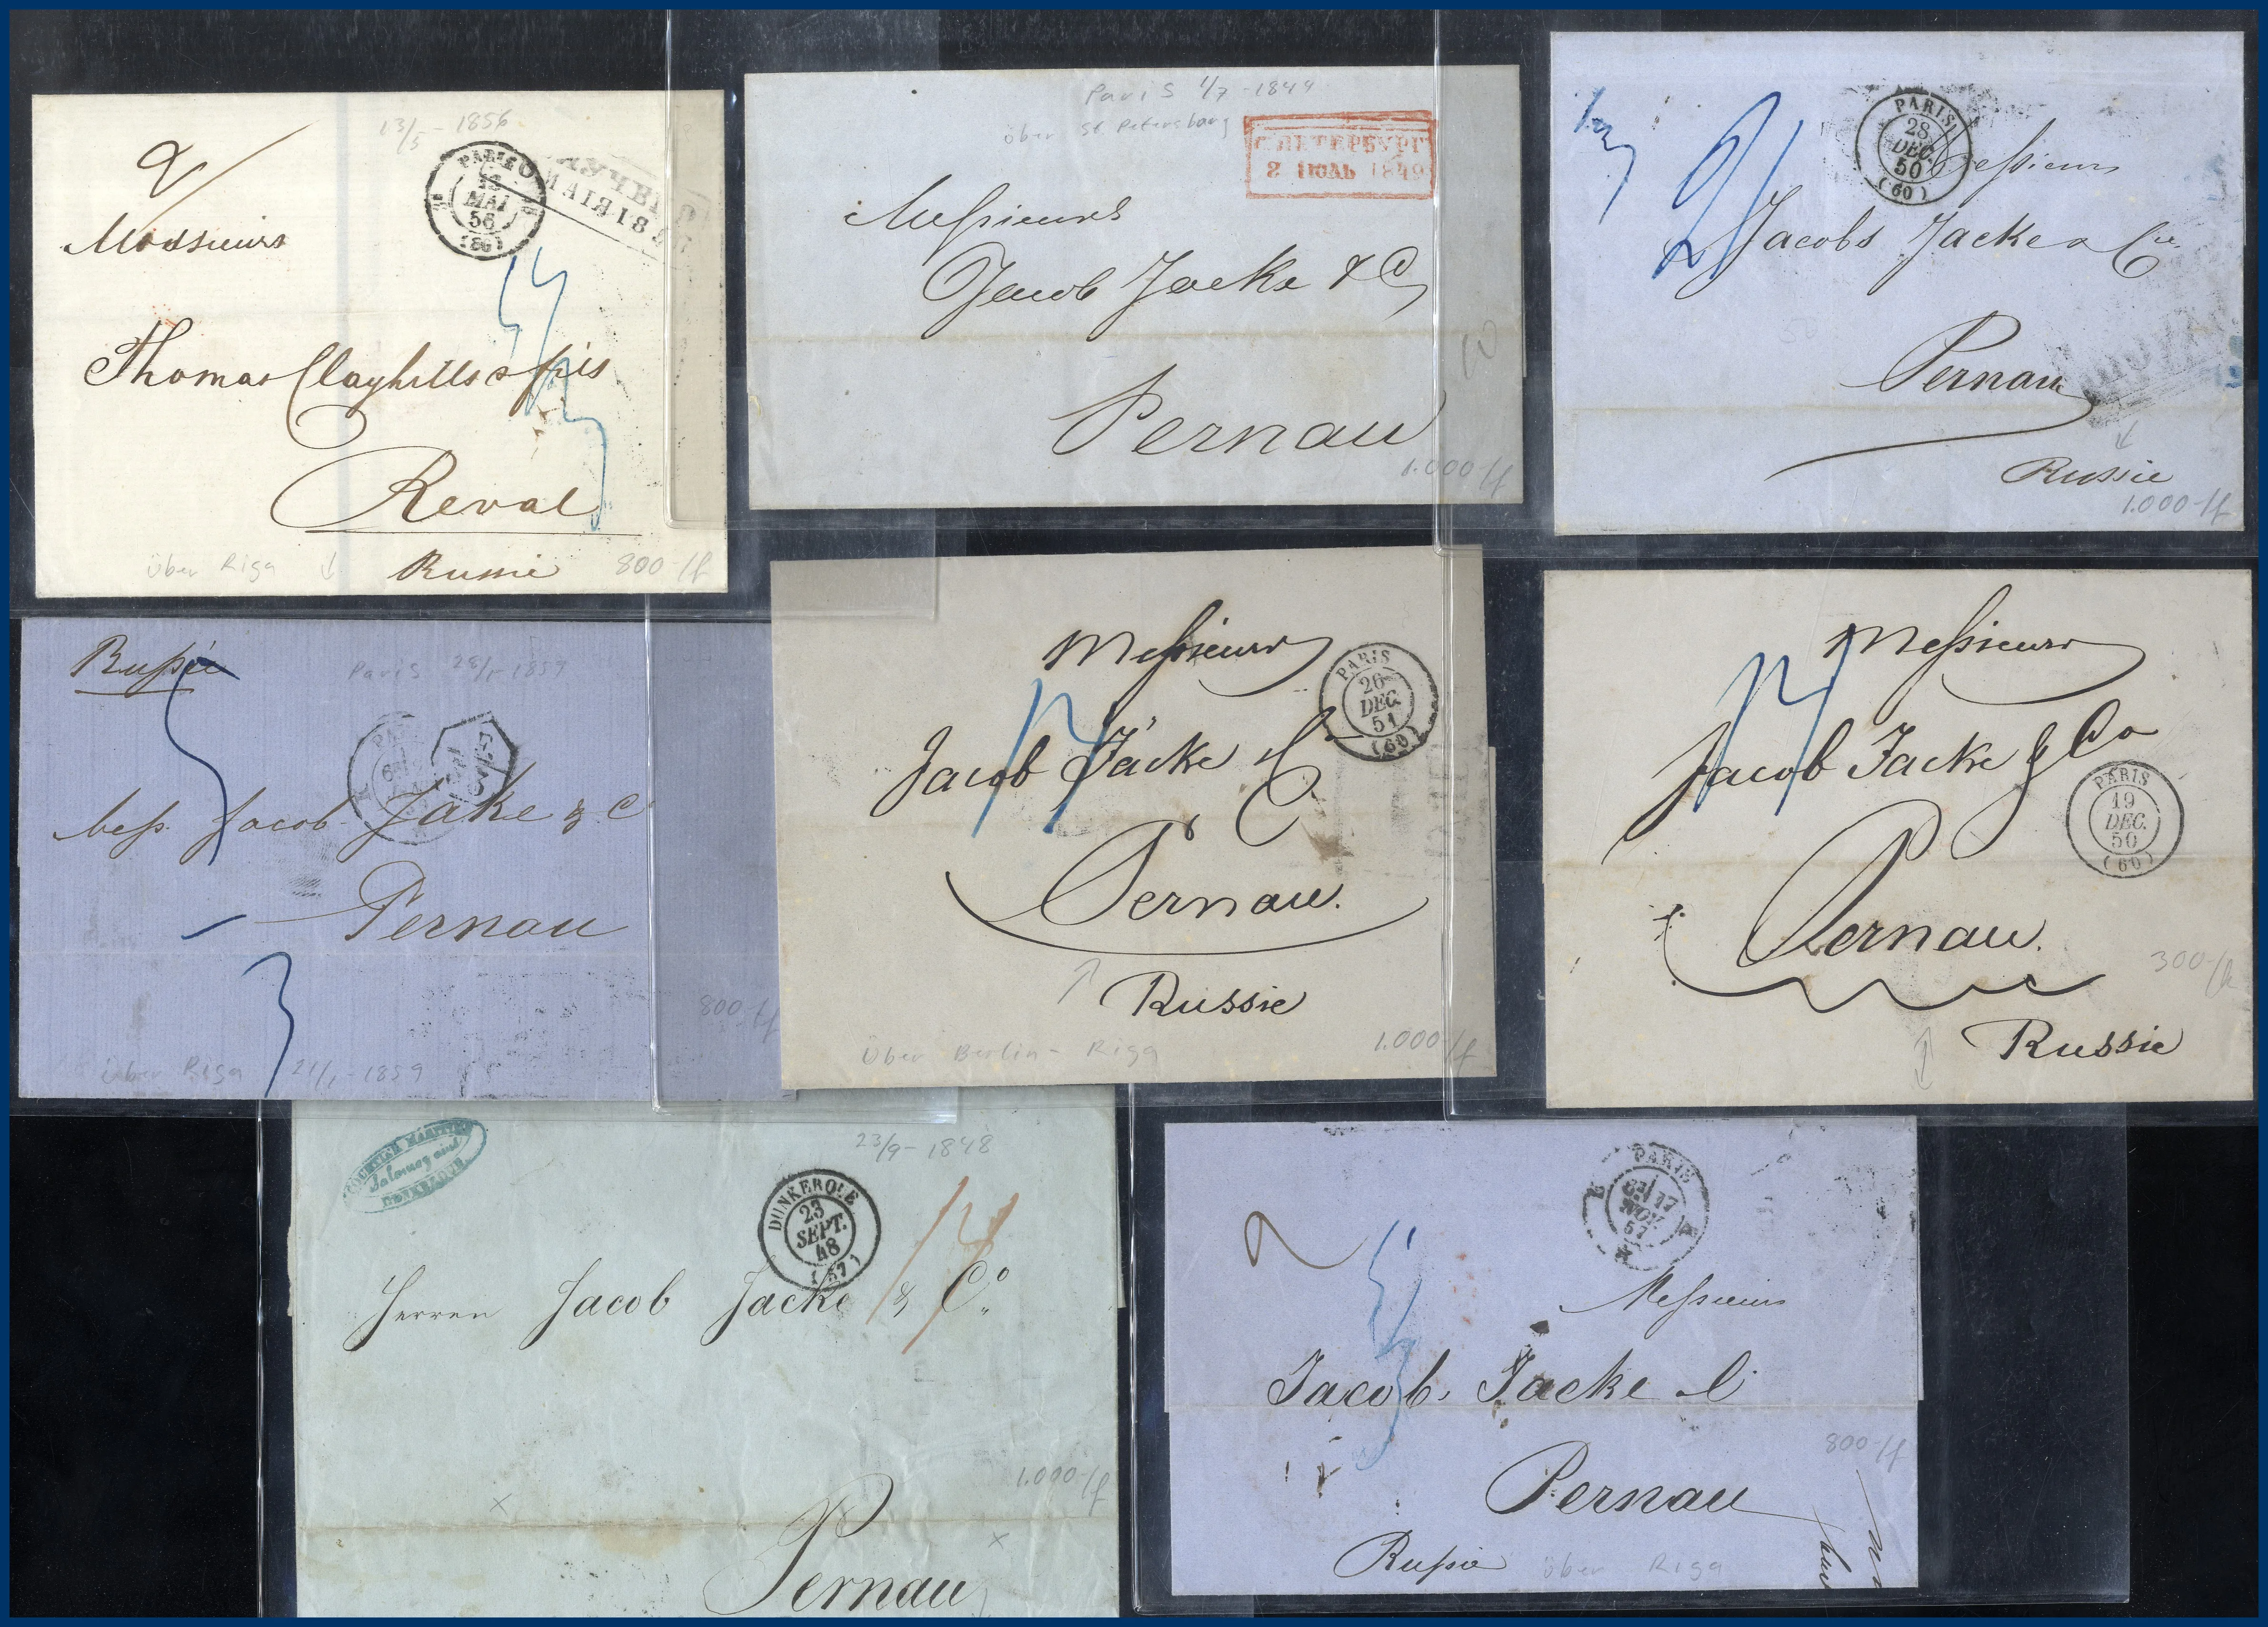 13/5 - 1856
PARIS
13
MAI
56
(60)
Messieurs
Thomas Clayhills & fils
Reval
Russie
über Riga
800.-
Paris 1/7 - 1849
über St Petersburg
С.ПЕТЕРБУРГ
2 ІЮЛЬ 1849
Messieurs
Jacob Jacke & C
Pernau
1.000.-
PARIS
28
DEC.
50
(60)
Messieurs
Jacobs Jacke & Cie
Pernau
Russie
1.000.-
Russie
Paris 28/1 - 1859
Mess. Jacob Jake & C
Pernau
800.-
über Riga 21/1 - 1859
Messieurs
PARIS
26
DEC.
51
(60)
Jacob Jacke & C
Pernau.
Russie
über Berlin - Riga
1.000.-
Messieurs
Jacob Jacke & Co
PARIS
19
DEC.
50
(60)
Pernau.
300.-
Russie
COURTIER MARITIME
DUNKERQUE
23/9 - 1848
DUNKERQUE
23
SEPT.
48
(57)
Herren Jacob Jacke & Co.
1.000.-
Pernau
PARIS
17
NOV.
57
Messieurs
Jacob Jacke & C.
800.-
Pernau
Russie
über Riga